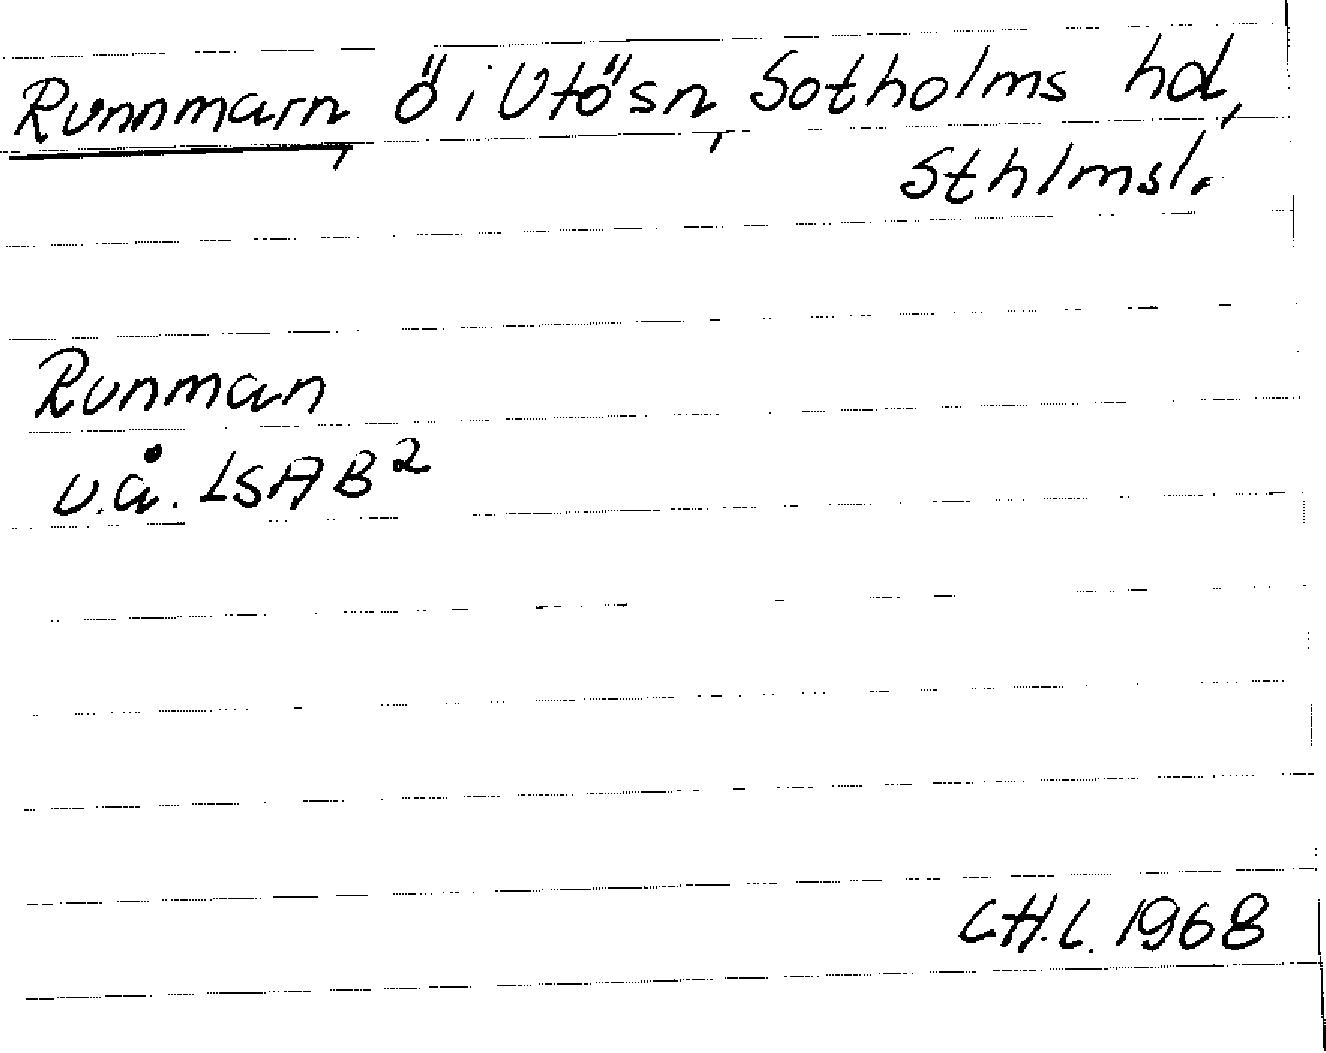 Runnmarn, ö i Utö sn, Sotholms hd,
Sthlms l.
Runman
u.å. LSA B²
C.H.L. 1968